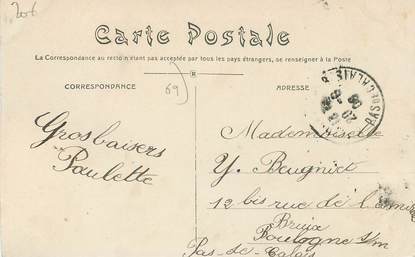 206
Carte Postale
La Correspondance au recto n'étant pas acceptée par tous les pays étrangers, se renseigner à la Poste
CORRESPONDANCE
69
ADRESSE
PAS DE CALAIS
Gros baisers
Paulette
Mademoiselle
Y. Beugniet
12 bis rue de
Boulogne s/m
Pas-de-Calais